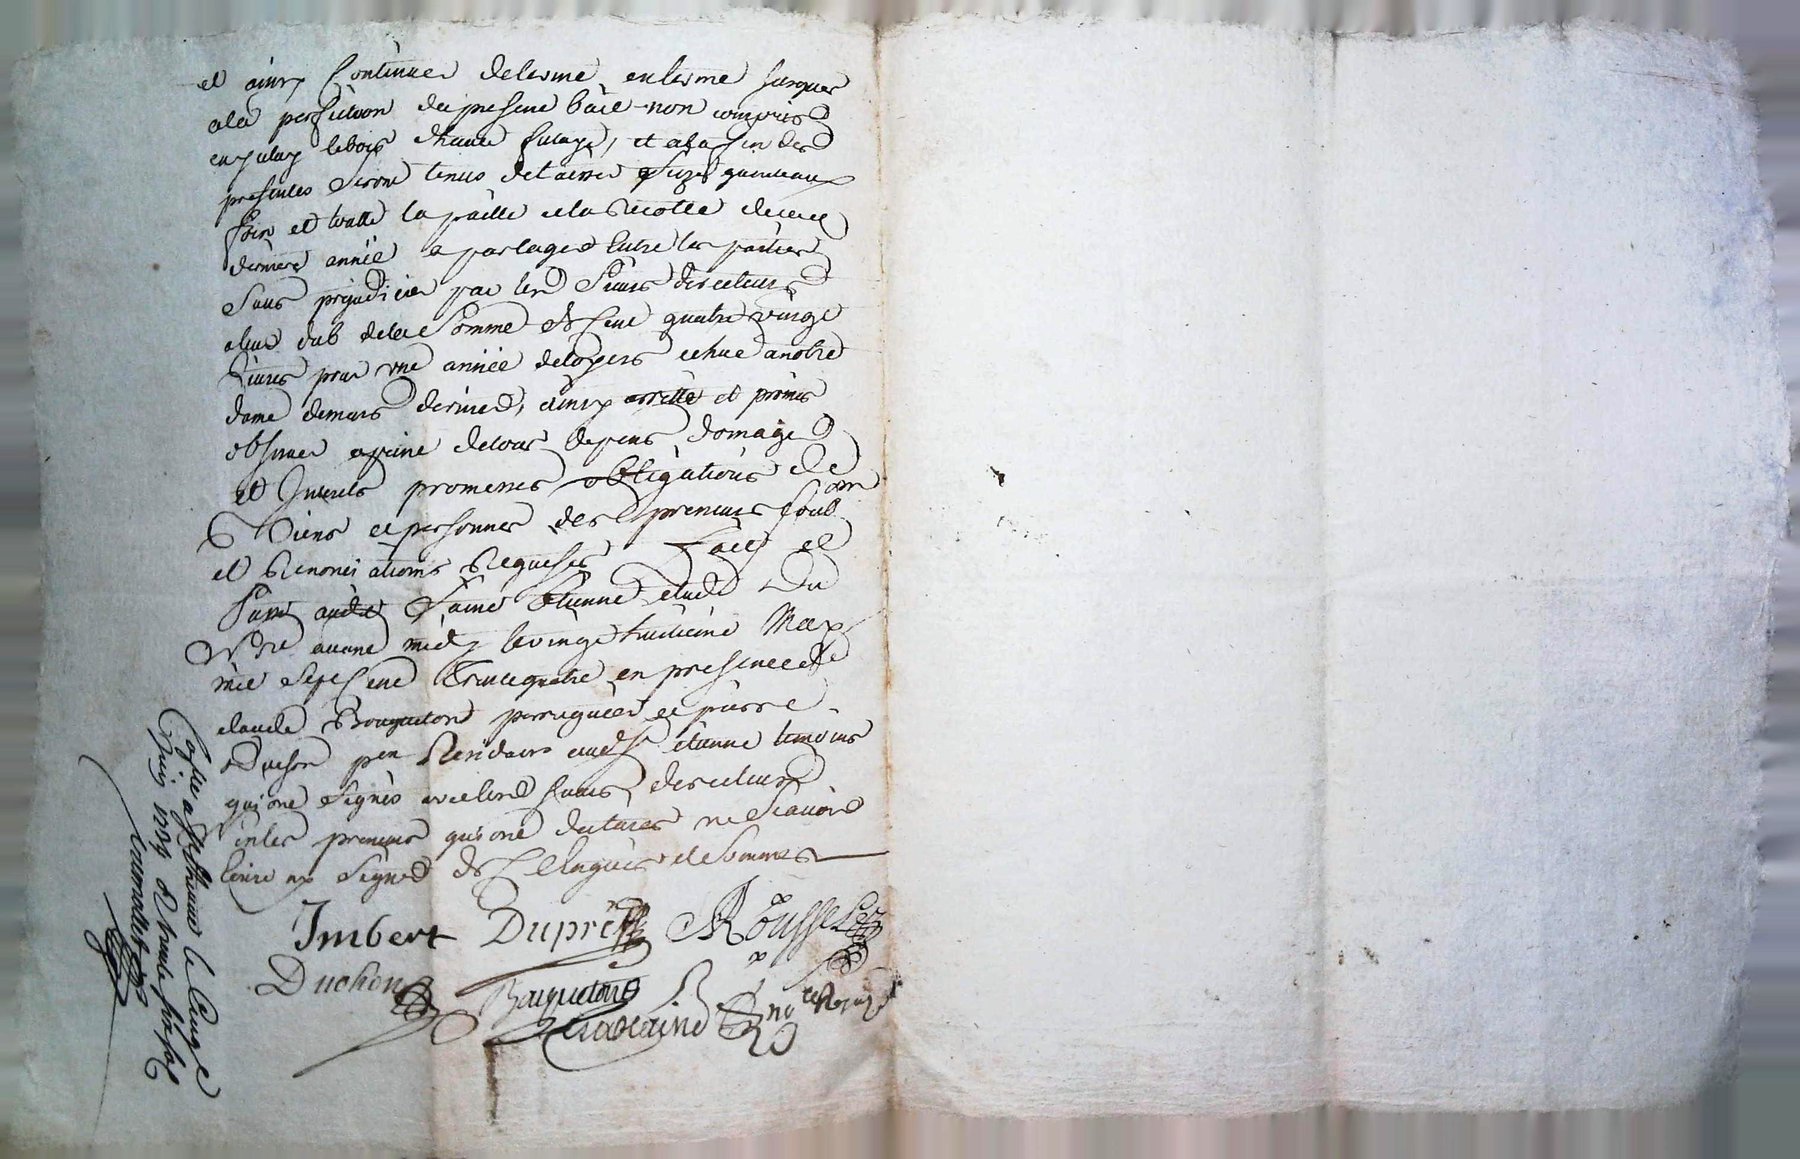 et ainsy Continuer de terme en terme jusques
ala perfection du present bail non compris
le bois d'haute futaye, et a la fin des
presentes seront tenus de laisser seize quinteaux
foin et toutte la paille et la Recolte de cette
derniere année a partager Entre les parties
Sans prejudicier par lesd Sieurs directeurs
aleur dub de la Somme de Cent quatre vingt
Livres pour une année de loyers echue a notre
dame de mars dernier, ainsy arretté et promis
observer a peine de tous depens domages
et Interets promesses obligations de
Biens et personnes des preneurs soub
et Renonciations Requises Fait et
Passé Saint Etienne etude du
avant midy le vingt huitieme May
mil sept Cent Trente quatre en presence de
claude Bouqueton perruquier et pierre
Duchon Residants aud St etienne temoins
qui ont Signés avec lesd sieurs directeurs
les preneurs qui ont declarés ne Scavoir
Ecrire ny Signer de Ce Enquis et Sommés
Imbert Dupré Rousset
Duchon Bouqueton
Conollé a St Etienne le
Juin 1734